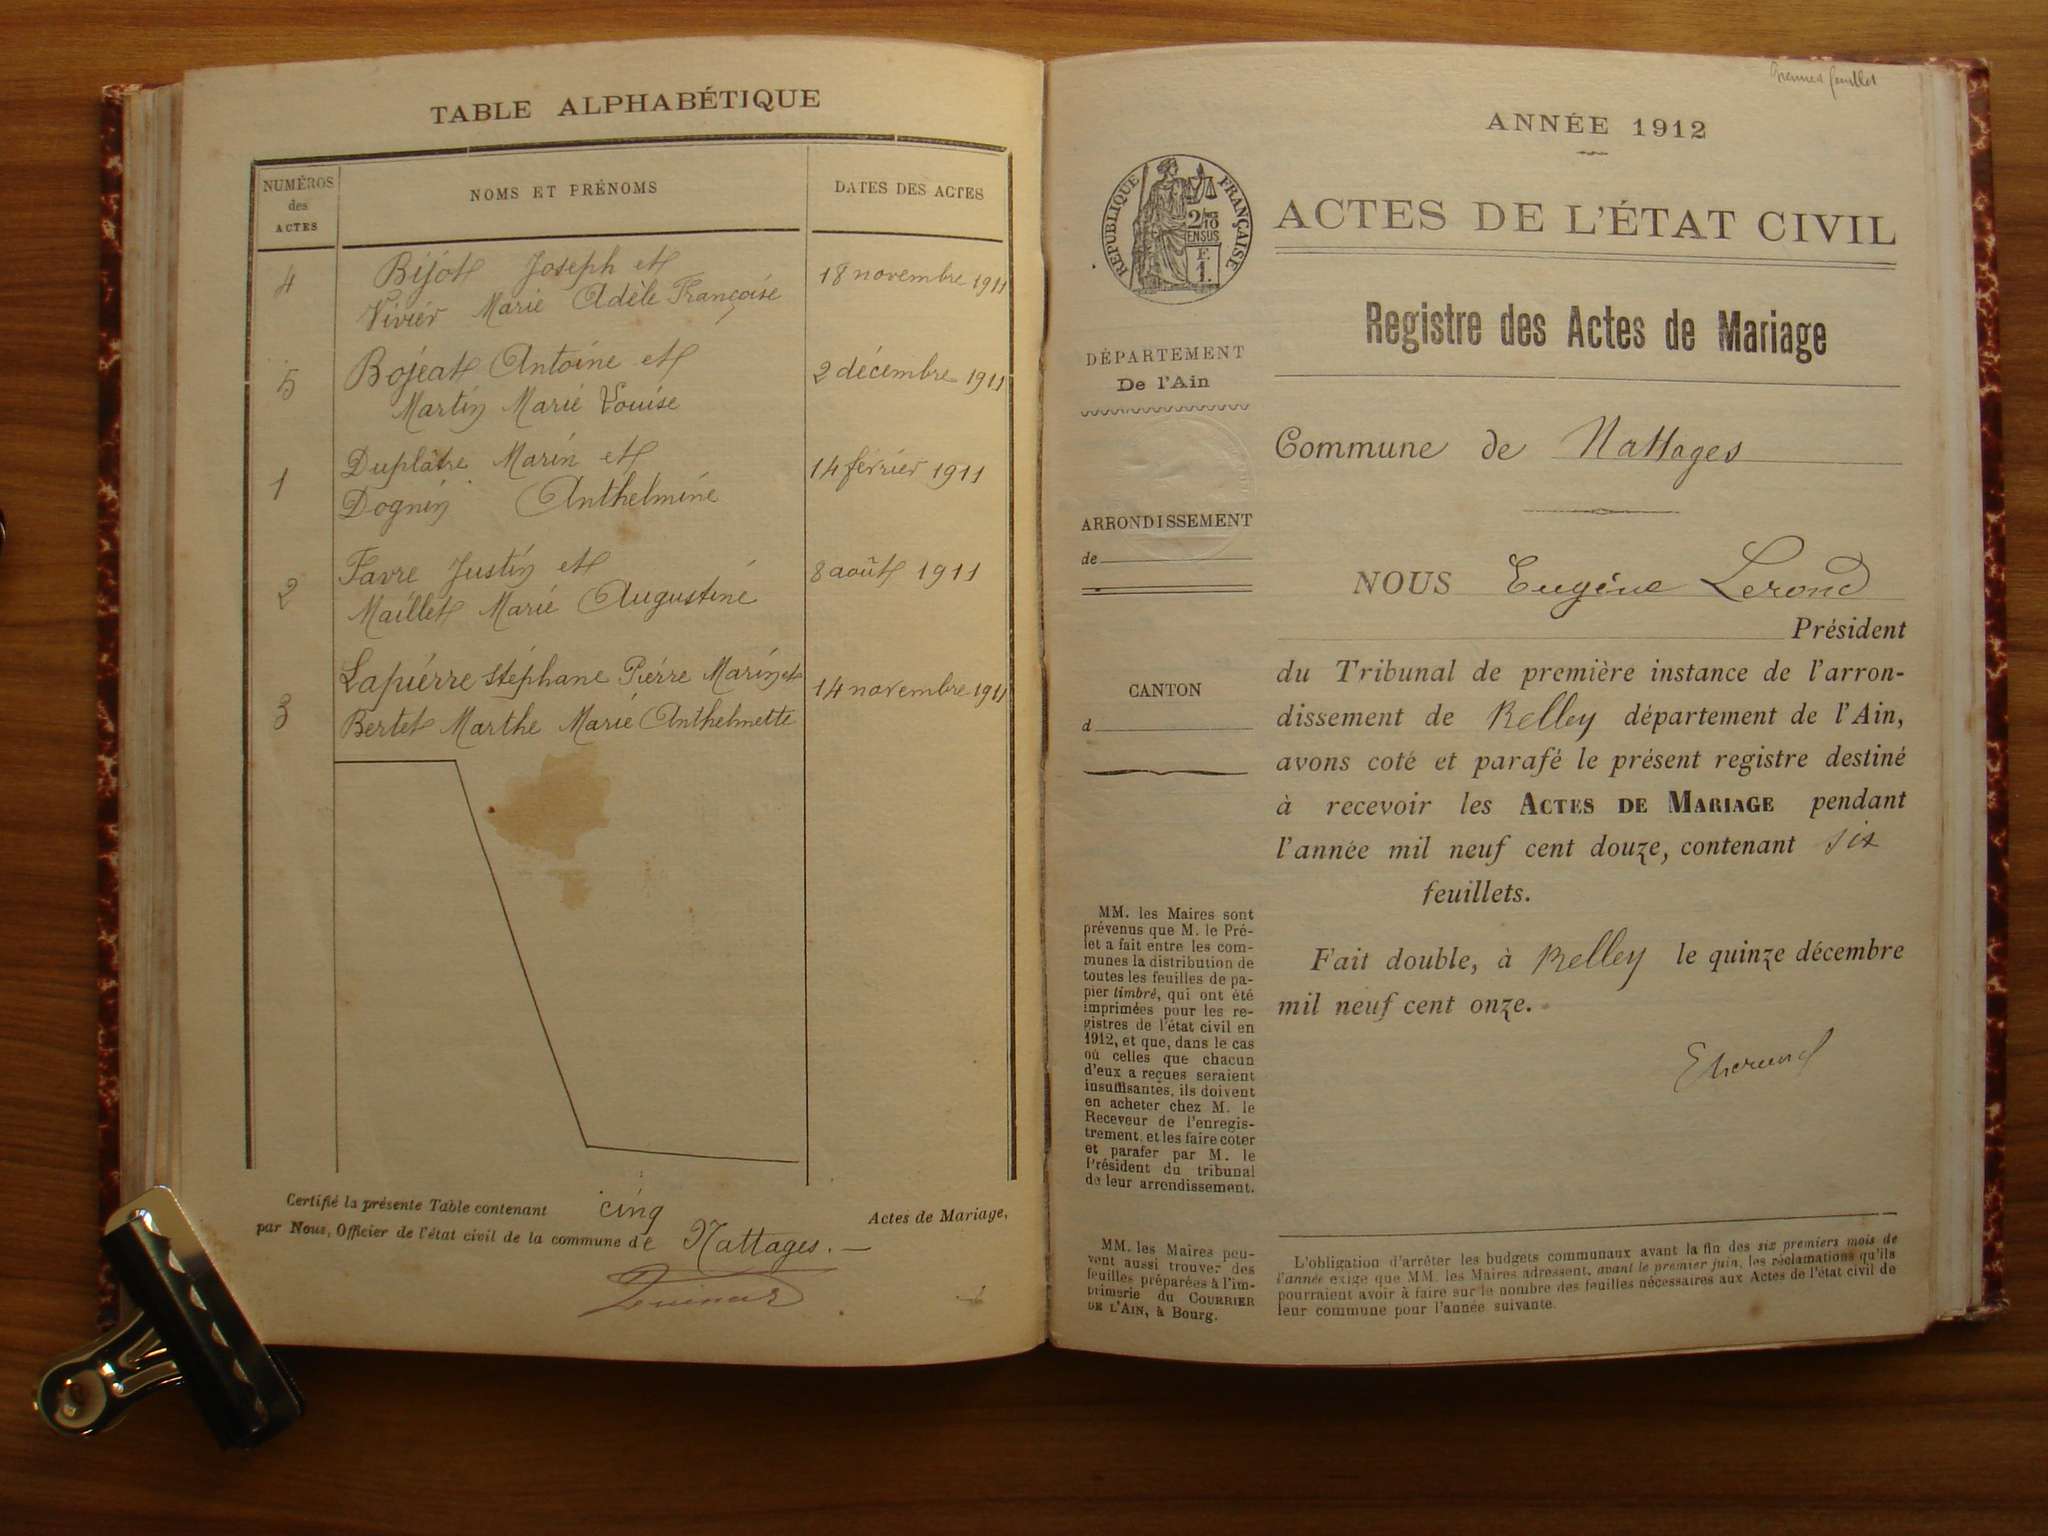 TABLE ALPHABÉTIQUE
NUMÉROS
des
ACTES
NOMS ET PRÉNOMS
DATES DES ACTES
4
Bijot Joseph et
Vivier Marie Adèle Françoise
18 novembre 1911
5
Bojeat Antoine et
Martin Marie Louise
2 décembre 1911
1
Duplâtre Marin et
Dognin Anthelmine
14 février 1911
2
Favre Justin et
Maillet Marie Augustine
8 août 1911
3
Lapierre Stéphane Pierre Marin et
Bertet Marthe Marie Anthelmette
14 novembre 1911
Certifié la présente Table contenant cinq Actes de Mariage,
par Nous, Officier de l'état civil de la commune de Nattages. —
Premier feuillet
ANNÉE 1912
RÉPUBLIQUE FRANÇAISE
2/10
EN SUS
F.
1.
ACTES DE L'ÉTAT CIVIL
Registre des Actes de Mariage
DÉPARTEMENT
De l'Ain
ARRONDISSEMENT
de
CANTON
d
MM. les Maires sont
prévenus que M. le Pré-
fet a fait entre les com-
munes la distribution de
toutes les feuilles de pa-
pier timbré, qui ont été
imprimées pour les re-
gistres de l'état civil en
1912, et que, dans le cas
où celles que chacun
d'eux a reçues seraient
insuffisantes, ils doivent
en acheter chez M. le
Receveur de l'enregis-
trement, et les faire coter
et parafer par M. le
Président du tribunal
de leur arrondissement.
MM. les Maires peu-
vent aussi trouver des
feuilles préparées à l'im-
primerie du COURRIER
DE L'AIN, à Bourg.
Commune de Nattages
NOUS Eugène Lerond
Président
du Tribunal de première instance de l'arron-
dissement de Belley département de l'Ain,
avons coté et parafé le présent registre destiné
à recevoir les ACTES DE MARIAGE pendant
l'année mil neuf cent douze, contenant six
feuillets.
Fait double, à Belley le quinze décembre
mil neuf cent onze.
L'obligation d'arrêter les budgets communaux avant la fin des six premiers mois de
l'année exige que MM. les Maires adressent, avant le premier juin, les réclamations qu'ils
pourraient avoir à faire sur le nombre des feuilles nécessaires aux Actes de l'état civil de
leur commune pour l'année suivante.